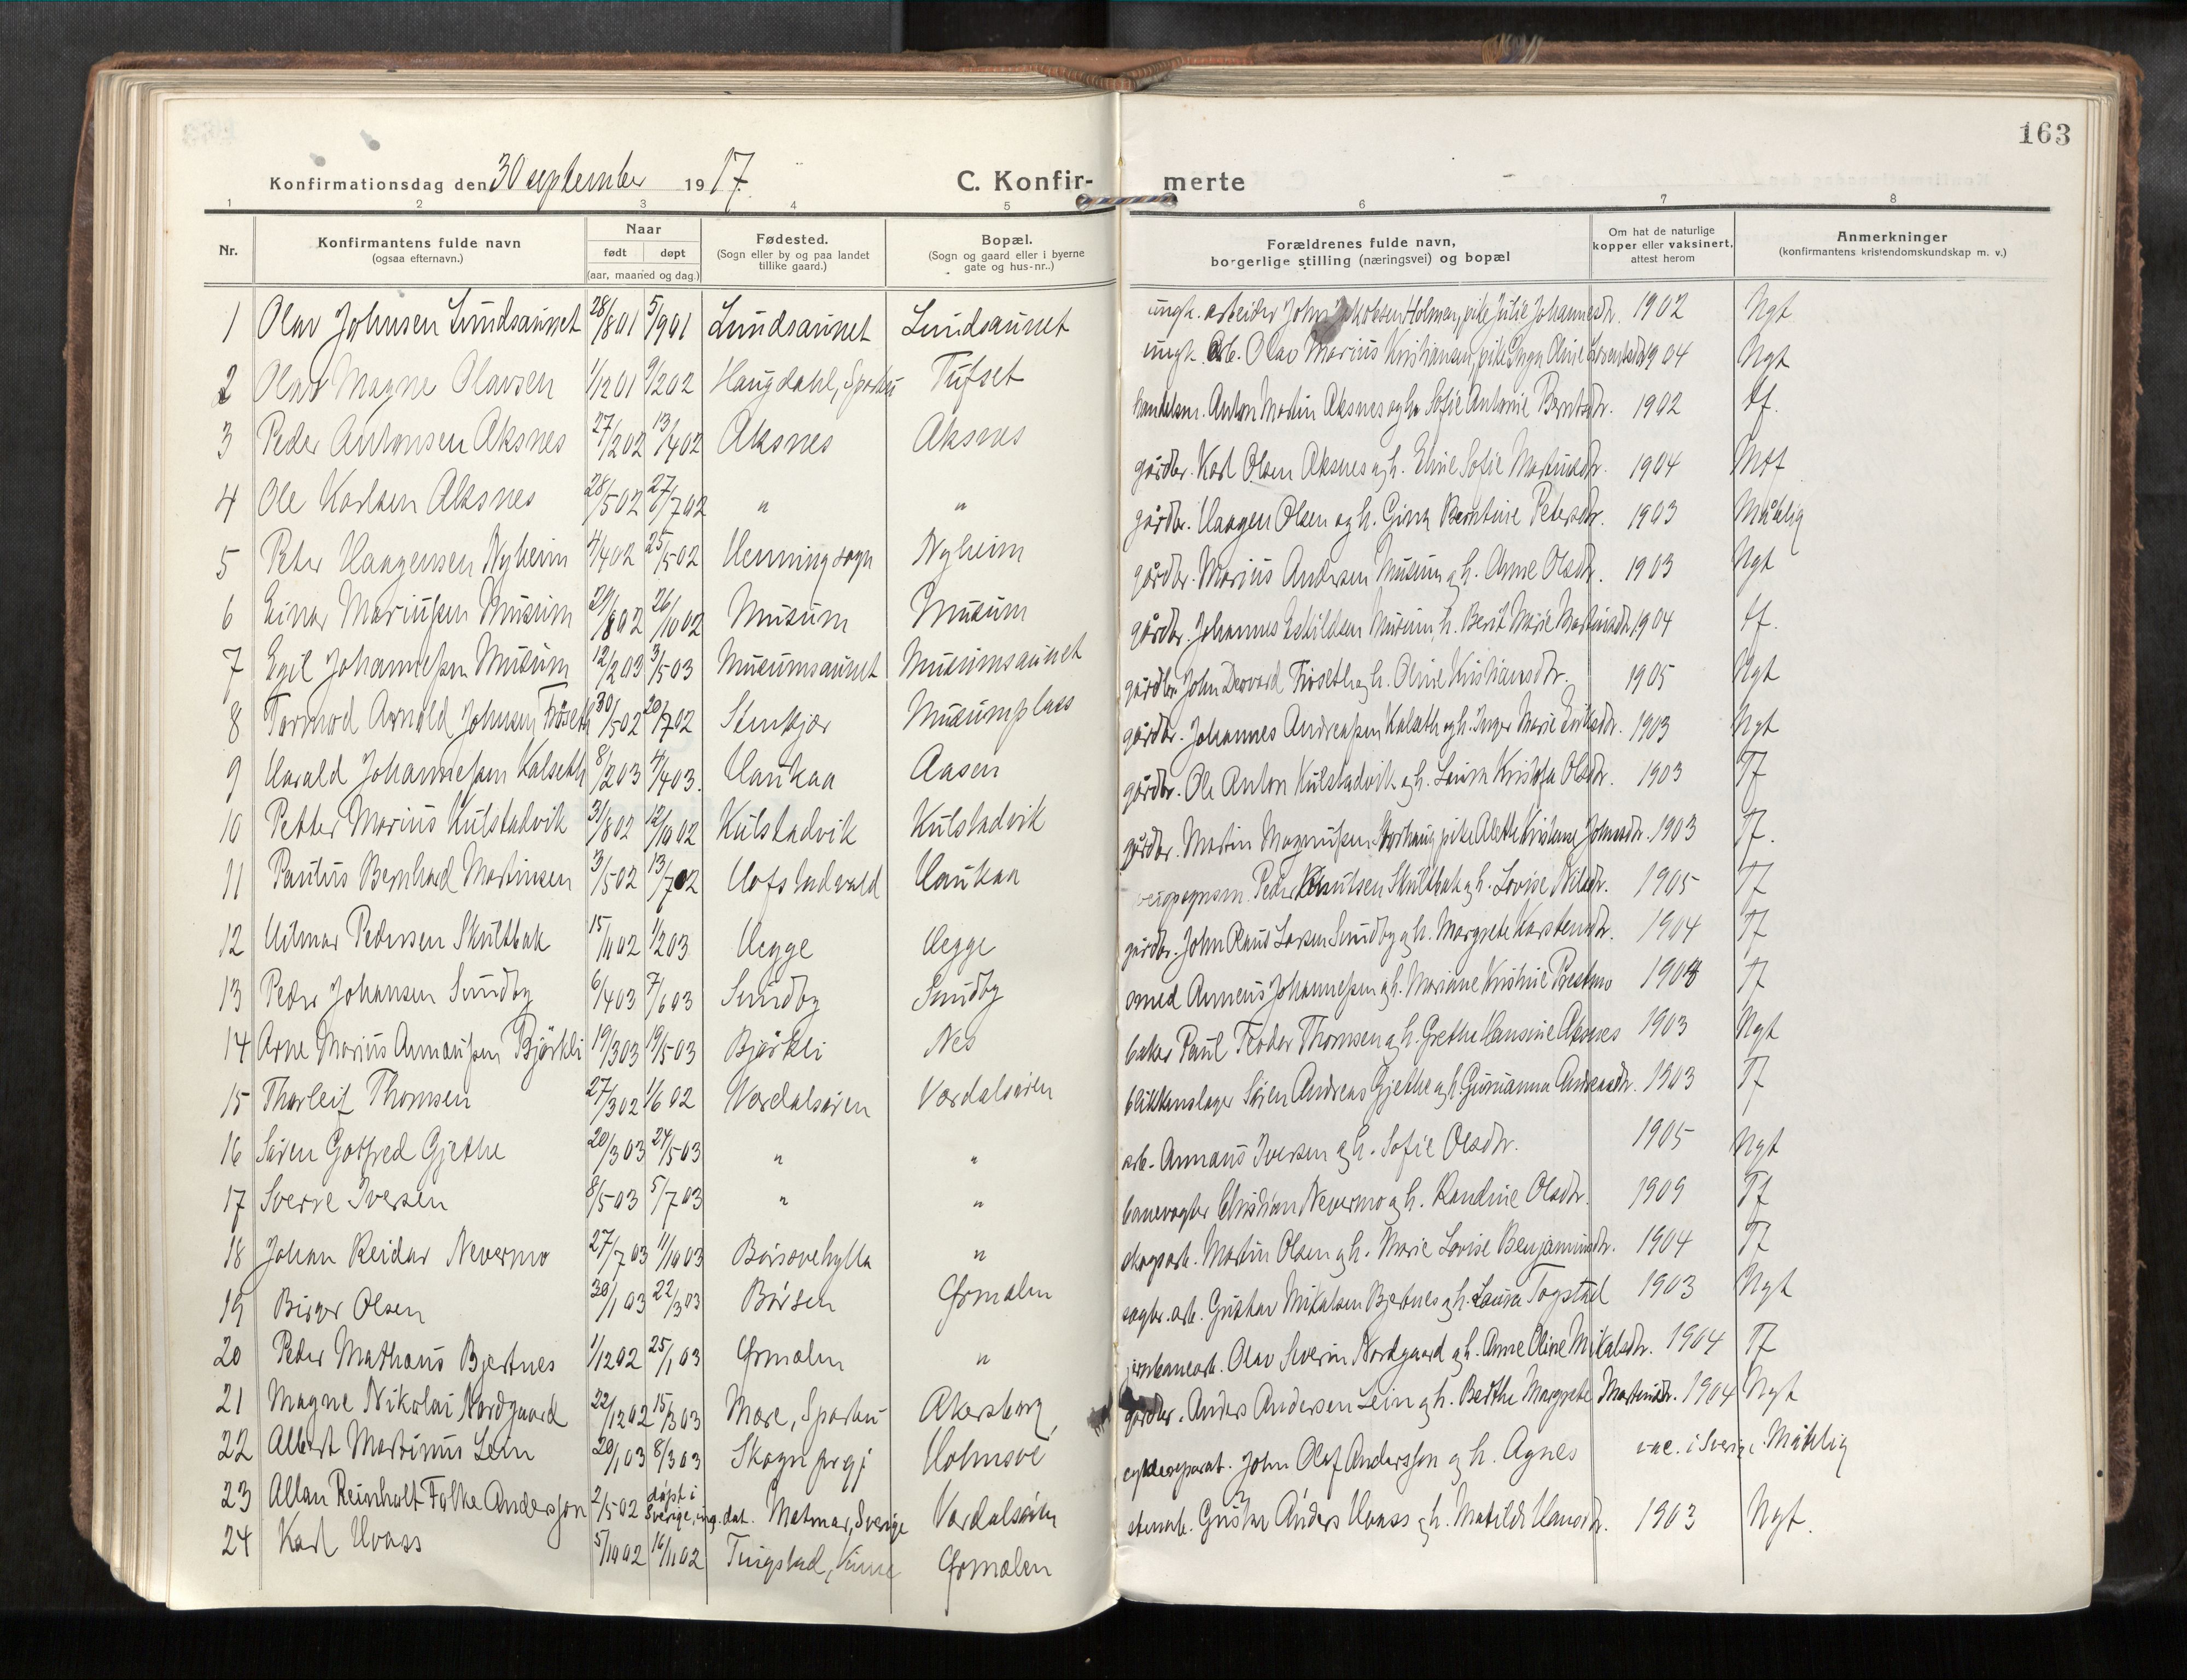 163
Konfirmationsdag den 30 september 1917.
C. Konfir- merte
1 2 3 4 5 6 7 8
Nr. Konfirmantens fulde navn (ogsaa efternavn.) Naar født døpt (aar, maaned og dag.) Fødested. (Sogn eller by og paa landet tillike gaard.) Bopæl. (Sogn og gaard eller i byerne gate og hus-nr..) Forældrenes fulde navn, borgerlige stilling (næringsvei) og bopæl Om hat de naturlige kopper eller vaksinert, attest herom Anmerkninger (konfirmantens kristendomskundskap m. v.)
1 Olav Johnsen Lundsaunet 28/8 01 5/9 01 Lundsaunet Lundsaunet ungk. arbeider John Jakobsen Holmen, pike Julie Johannesdr. 1902 Ngt
2 Olav Magne Olavsen 1/12 01 9/2 02 Haugdahl, Sparbu Tufset ungk. arb. Olav Marius Kristiansen, pike Inga Oline 1904 Ngt
3 Peder Antonsen Aksnes 27/2 02 13/4 02 Aksnes Aksnes handelsm. Anton Martin Aksnes og h. Sofie Antonie Berntsdr. 1902 tf.
4 Ole Karlsen Aksnes 28/5 02 27/7 02 " " gårdbr. Karl Olsen Aksnes og h. Eline Sofie Martinsdr. 1904 Mtf
5 Peter Haagensen Nyheim 4/4 02 25/5 02 Henning sogn Nyheim gårdbr. Haagen Olsen og h. Gina Berntine Petersdr. 1903 Måtelig
6 Einar Mariussen Musum 29/8 02 26/10 02 Musum Musum gårdbr. Marius Andersen Musum og h. Anne Olsdtr. 1903 Ngt
7 Egil Johannessen Musum 12/2 03 3/5 03 Musumsaunet Musumsaunet gårdbr. Johannes Eskildsen Musum, h. Berit Marie Martinsdtr. 1904 tf.
8 Tormod Arnold Johnsen Fröseth 30/5 02 20/7 02 Stenkjær Musumplass gårdbr. John Fröseth og h. Oline Kristiansdtr. 1905 Ngt
9 Harald Johannessen Kalseth 8/2 03 4/4 03. Haukaa Aasen gårdbr. Johannes Andreassen Kalseth og h. Inger Marie Eriksdtr. 1903 Ngt
10 Petter Marius Kulstadvik 31/8 02 12/10 02 Kulstadvik Kulstadvik gårdbr. Ole Anton Kulstadvik og h. Laura Kristofa Olsdtr. 1903 Tf
11 Paulus Bernhard Martinsen 3/5 02 13/7 02 Hofstadvald Haukaa gårdbr. Martin Magnussen Storhaug, pike Alette Kristense Johnsdtr. 1903 Tf.
12 Hilmar Pedersen Skultbak 15/11 02 1/2 03 Hegge Hegge Peder Knutsen Skultbak og h. Lovise Nilsdr. 1905 Tf
13 Peder Johansen Sundby 6/4 03 7/6 03 Sundby Sundby gårdbr. John Larsen Sundby og h. Margrete Karstensdr. 1904 Tf
14 Arne Marius Annæussen Björkli 19/3 03 19/5 03 Björkli Nes smed Annæus Johannessen og h. Mariane Kristine Prestmo 1903 Tf
15 Thorleif Thomsen 27/3 02 1/6 02 Værdalsören Værdalsören baker Paul Teodor Thomsen og h. Grethe Hansine Aksnes 1903 Ngt
16 Sören Gotfred Gjethe 20/3 03 24/5 03 " " blikkenslager Sören Andreas Gjethe og h. Gurianna Andreasdr. 1903 Tf
17 Sverre Iversen 8/5 03 5/7 03 " " arb. Annæus Iversen og h. Sofie Olsdtr. 1905 Ngt
18 Johan Reidar Nevermo 27/7 03 11/10 03 Börsovehylla " banevogter Christian Nevermo og h. Randine Olsdtr. 1909 Tf
19 Birger Olsen 30/1 03 22/3 03 Börsen Ørmelen skogsarb. Martin Olsen og h. Marie Lovise Benjaminsdtr. 1904 Tf
20 Peder Mathæus Bjertnes 1/12 02 25/1 03 Ørmelen " sagbr. arb. Gustav Mikalsen Bjertnes og h. Laura Togstad 1903 Ngt
21 Magne Nikolai Nordgaard 22/12 02 15/3 03 Mære, Sparbu Akersborg jernbanearb. Olav Severin Nordgaard og h. Anne Oline Mikalsdtr. 1904 Tf
22 Albert Martinus Lein 20/1 03 8/3 03 Skogn prgj Holmsve gårdbr. Anders Andersen Lein og h. Berthe Margrete Martinsdr. 1904 Ngt
23 Allan Reinholt Falke Andersson 2/5 02 døpt i Sverige, ing. dat. Matmar, Sverige Værdalsören John Olof Andersson og h. Agnes vac. i Sverige Måtelig
24 Karl Hvass 5/10 02 16/11 02 Tingstad, Ørmelen stenarb. Gustav Anders Hvass og h. Matilde Hansdr. 1903 Ngt.